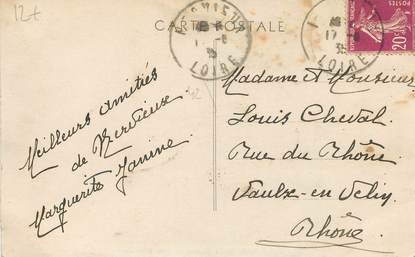 12+
CARTE POSTALE
LOIRE
17-8
35
LOIRE
20c
Meilleurs amitiés
de Nervieux
Marguerite Janine
Madame et Monsieur
Louis Cheval
Rue du Rhône
Vaulx-en-Velin
Rhône